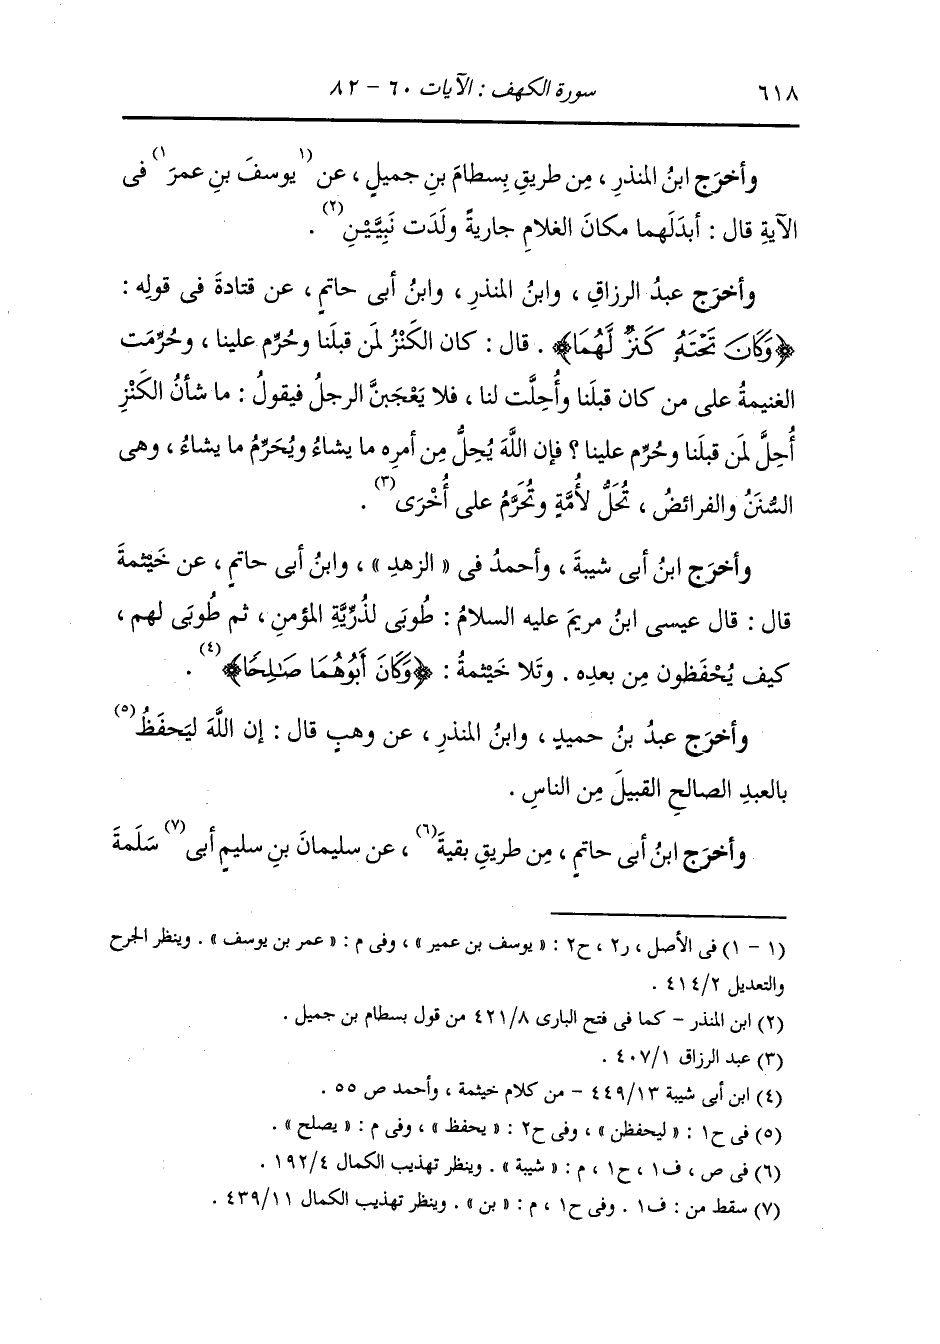 ٦١٨ سورة الكهف : الآيات ٦٠ - ٨٢
وأخرَج ابنُ المنذرِ ، مِن طريقِ بِسطامَ بنِ جميلٍ ، عن (١يوسفَ بنِ عمرَ١) فى
الآيةِ قال : أبدَلَهما مكانَ الغلامِ جاريةً ولَدَت نَبِيَّيْنِ(٢) .
وأخرَج عبدُ الرزاقِ ، وابنُ المنذرِ ، وابنُ أبى حاتمٍ ، عن قتادةَ فى قولِه :
﴿وَكَانَ تَحْتَهُ كَنزٌ لَّهُمَا﴾ . قال : كان الكَنْزُ لمَن قبلَنا وحُرِّم علينا ، وحُرِّمَت
الغنيمةُ على من كان قبلَنا وأُحِلَّت لنا ، فلا يَعْجَبنَّ الرجلُ فيقولُ : ما شأنُ الكَنْزِ
أُحِلَّ لمَن قبلَنا وحُرِّم علينا ؟ فإن اللَّهَ يُحِلُّ مِن أمرِه ما يشاءُ ويُحَرِّمُ ما يشاءُ ، وهى
السُّنَنُ والفرائضُ ، تُحَلُّ لأُمَّةٍ وتُحَرَّمُ على أُخْرَى(٣) .
وأخرَج ابنُ أبى شيبةَ ، وأحمدُ فى « الزهدِ » ، وابنُ أبى حاتمٍ ، عن خَيْثمةَ
قال : قال عيسى ابنُ مريمَ عليه السلامُ : طُوبَى لذُرِّيَّةِ المؤمنِ ، ثم طُوبَى لهم ،
كيف يُحْفَظون مِن بعدِه . وتَلا خَيْثمةُ : ﴿وَكَانَ أَبُوهُمَا صَٰلِحًا﴾(٤) .
وأخرَج عبدُ بنُ حميدٍ ، وابنُ المنذرِ ، عن وهبٍ قال : إن اللَّهَ ليَحفَظُ(٥)
بالعبدِ الصالحِ القبيلَ مِن الناسِ .
وأخرَج ابنُ أبى حاتمٍ ، مِن طريقِ بقيةَ(٦) ، عن سليمانَ بنِ سليمٍ أبى(٧) سَلَمةَ
(١ - ١) فى الأصل ، ر٢ ، ح٢ : « يوسف بن عمير » ، وفى م : « عمر بن يوسف » . وينظر الجرح
والتعديل ٤١٤/٢ .
(٢) ابن المنذر - كما فى فتح البارى ٤٢١/٨ من قول بسطام بن جميل .
(٣) عبد الرزاق ٤٠٧/١ .
(٤) ابن أبى شيبة ٤٤٩/١٣ - من كلام خيثمة ، وأحمد ص ٥٥ .
(٥) فى ح١ : « ليحفظن » ، وفى ح٢ : « يحفظ » ، وفى م : « يصلح » .
(٦) فى ص ، ف١ ، ح١ ، م : « شيبة » . وينظر تهذيب الكمال ١٩٢/٤ .
(٧) سقط من : ف١ . وفى ح١ ، م : « بن » . وينظر تهذيب الكمال ٤٣٩/١١ .